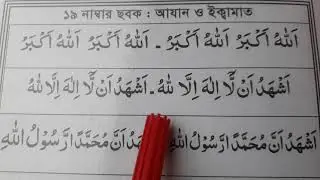 ১৯ নাম্বার ছবক : আযান ও ইক্বামাত
اَللّٰهُ اَكْبَرُ اَللّٰهُ اَكْبَرُ ـ اَللّٰهُ اَكْبَرُ اَللّٰهُ اَكْبَرُ
اَشْهَدُ اَنْ لَّا اِلٰهَ اِلَّا اللّٰهُ ـ اَشْهَدُ اَنْ لَّا اِلٰهَ اِلَّا اللّٰهُ
اَشْهَدُ اَنَّ مُحَمَّدًا رَّسُوْلُ اللّٰهِ اَشْهَدُ اَنَّ مُحَمَّدًا رَّسُوْلُ اللّٰهِ